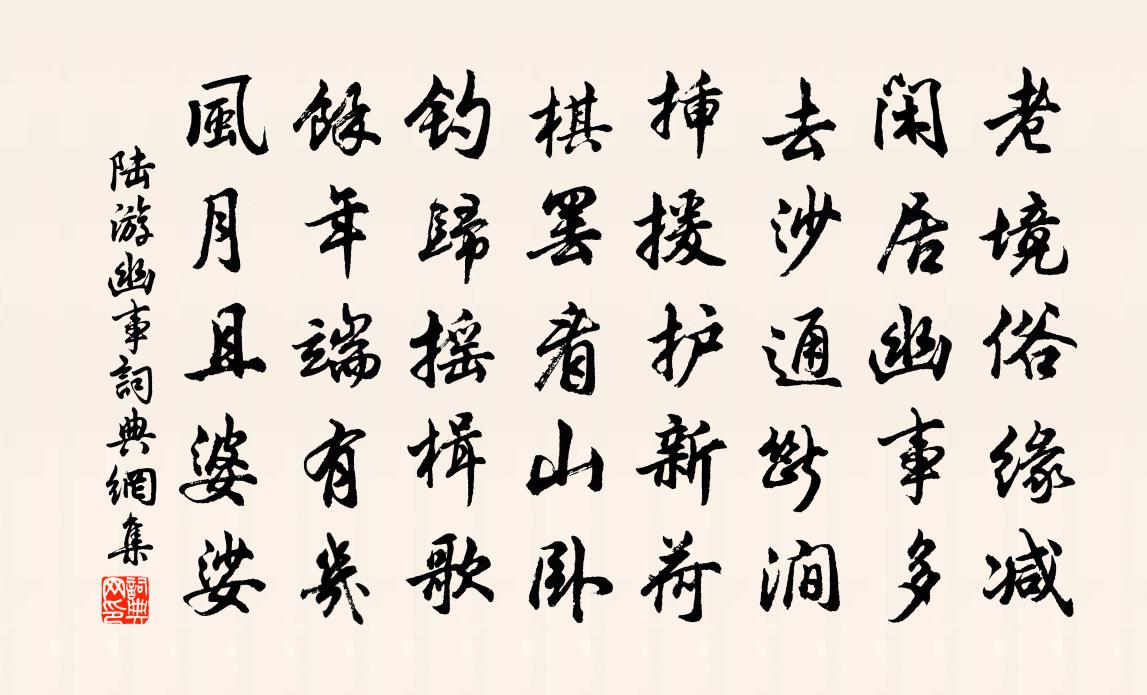 老境俗缘减
闲居幽事多
去沙通断涧
插援护新荷
棋罢看山卧
钓歸摇楫歌
馀年端有幾
風月且婆娑
陆游幽事詞典網集
詞典网印